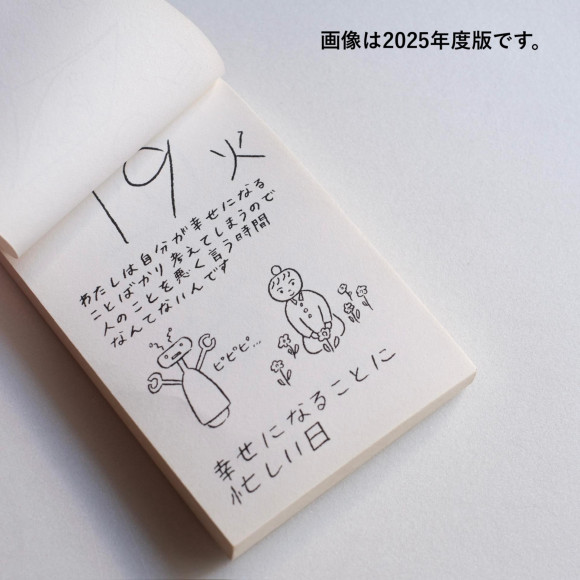 画像は2025年度版です。
19 火
わたしは自分が幸せになる
ことばかり考えてしまうので
人のことを悪く言う時間
なんてないんです
ピピピ…
幸せになることに
忙しい日